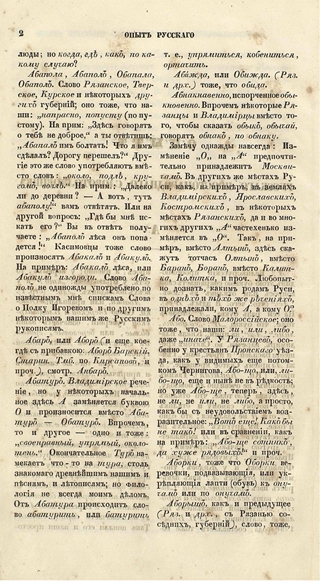 2
ОПЫТЪ РУССКАГО
люды; но когда, гдѣ, какъ, по ка-
кому случаю?
Абапола, Абаполъ, Обапала,
Обаполъ. Слово Рязанское, Твер-
ское, Курское и нѣкоторыхъ дру-
гихъ губерній; оно тоже, что на-
ши: „напрасно, попусту (по пу-
стому). На прим: „Здѣсь говорятъ
о тебѣ не доброе," а ты отвѣтишь:
„Абаполъ имъ болтать! Что я имъ
сдѣлалъ? Дорогу перешелъ?" Дру-
гіе это же слово употребляютъ вмѣ-
сто словъ: около, подлѣ, кру-
гомъ, возлѣ. На прим: „Далеко
ли до деревни? — А вотъ, тутъ
абаполъ!" вамъ отвѣтятъ. Или на
другой вопросъ: „Гдѣ бы мнѣ ис-
кать его?" Вы въ отвѣтъ полу-
чаете: „Абаполъ лѣса онъ попа-
дется!" Касимовцы тоже слово
произносятъ Абакалъ и Абакулъ.
На примѣръ: Абакалъ лѣса, или
Абакулъ изгороди. Слово Аба-
полъ не одиножды употреблено по
извѣстнымъ мнѣ спискамъ Слова
о Полку Игоревомъ и по другимъ
нѣкоторымъ нашимъ же Русскимъ
рукописямъ.
Абаръ, или Аборъ (и еще кое-
гдѣ съ прибавкою: Аборъ Барскій,
и проч.), смотр. Анбаръ.
Абатуръ. Владимірское рече-
ніе, но у нѣкоторыхъ начальное
здѣсь А замѣняется буквою
О и произносится вмѣсто Аба-
туръ — Обатуръ. Впрочемъ,
то и другое — одно и тоже:
Окончательное Туръ на-
мекаетъ что-то на тура, столь
знакомаго древнѣйшимъ нашимъ и
пѣснямъ, и лѣтописямъ; но Фило-
логія не всегда моимъ дѣломъ.
Отъ Абатура происходитъ сло-
во абатурить, или батурить,
т. е., упрямиться, кобениться,
артачить.
Абижда, или Обижда. (Ряз.
и друг.) тоже, что обида.
Абнакавенно, испорченное обы-
кновенно. Впрочемъ нѣкоторые Ря-
занцы и Владимірцы вмѣсто то-
го, чтобы сказать обыкъ, обыкай,
говорятъ обнакъ, по обнаку.
Замѣчу однажды навсегда: Из-
мѣненіе „О, на „А" преднопочти-
тельно принадлежитъ Москви-
тамъ. Въ другихъ же мѣстахъ Ру-
си, какъ, на примѣръ, въ земляхъ
Владимірскихъ, Ярославскихъ,
Костромскихъ, въ нѣкоторыхъ
мѣстахъ Рязанскихъ, да и во мно-
гихъ другихъ „А" частехонько из-
мѣняется въ „О". Такъ, на при-
мѣръ, вмѣсто Алтынъ, здѣсь ска-
жутъ тотчасъ Олтынъ, вмѣсто
Баранъ, Боранъ, вмѣсто Калит-
ка, Колитка, и проч. Любопыт-
но дознать, какимъ родамъ Руси,
въ отдѣлѣ и тѣхъ же рѣченіяхъ,
принадлежали, кому А, а кому О?
Або, Слово Малороссійское: оно
тоже, что наши: ли, или, либо,
даже „иначе". У Рязанцевъ, осо-
бенно у крестьянъ Пронскаго уѣз-
да, какъ у видимыхъ еще потом-
ковъ Чернигова, Або-що, или ли-
бо-що, еще и нынѣ не въ рѣдкость;
но уже Або-що, теперь, здѣсь
не ли, не или, не либо, а просто,
какъ бы съ неудовольствіемъ воз-
разительное: „Вотъ еще! Какъ бы
не такъ!" или въ сравненіи, какъ
на примѣръ: „Або-що сотникъ,
да хуже рядовыхъ!" и проч.
Аборки, тоже что Оборки ве-
ревочки, подвязывающія, или ук-
рѣпляющія лапти (обувь) къ ону-
чамъ или по онучамъ.
Аборышъ, какъ и предыдущее
(Ряз. и друг., съ Рязанью со-
сѣднихъ, губерній), слово, тоже,